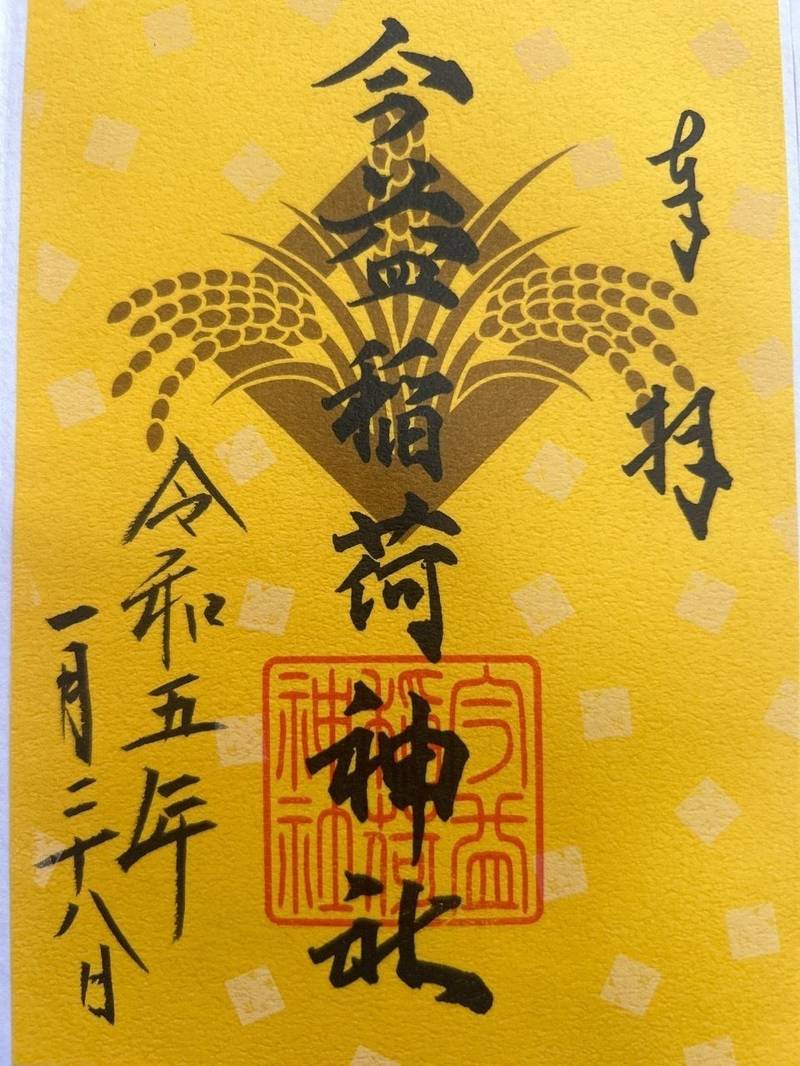 奉拝
今益稲荷神社
今益
稲荷
神社
令和五年
一月二十八日